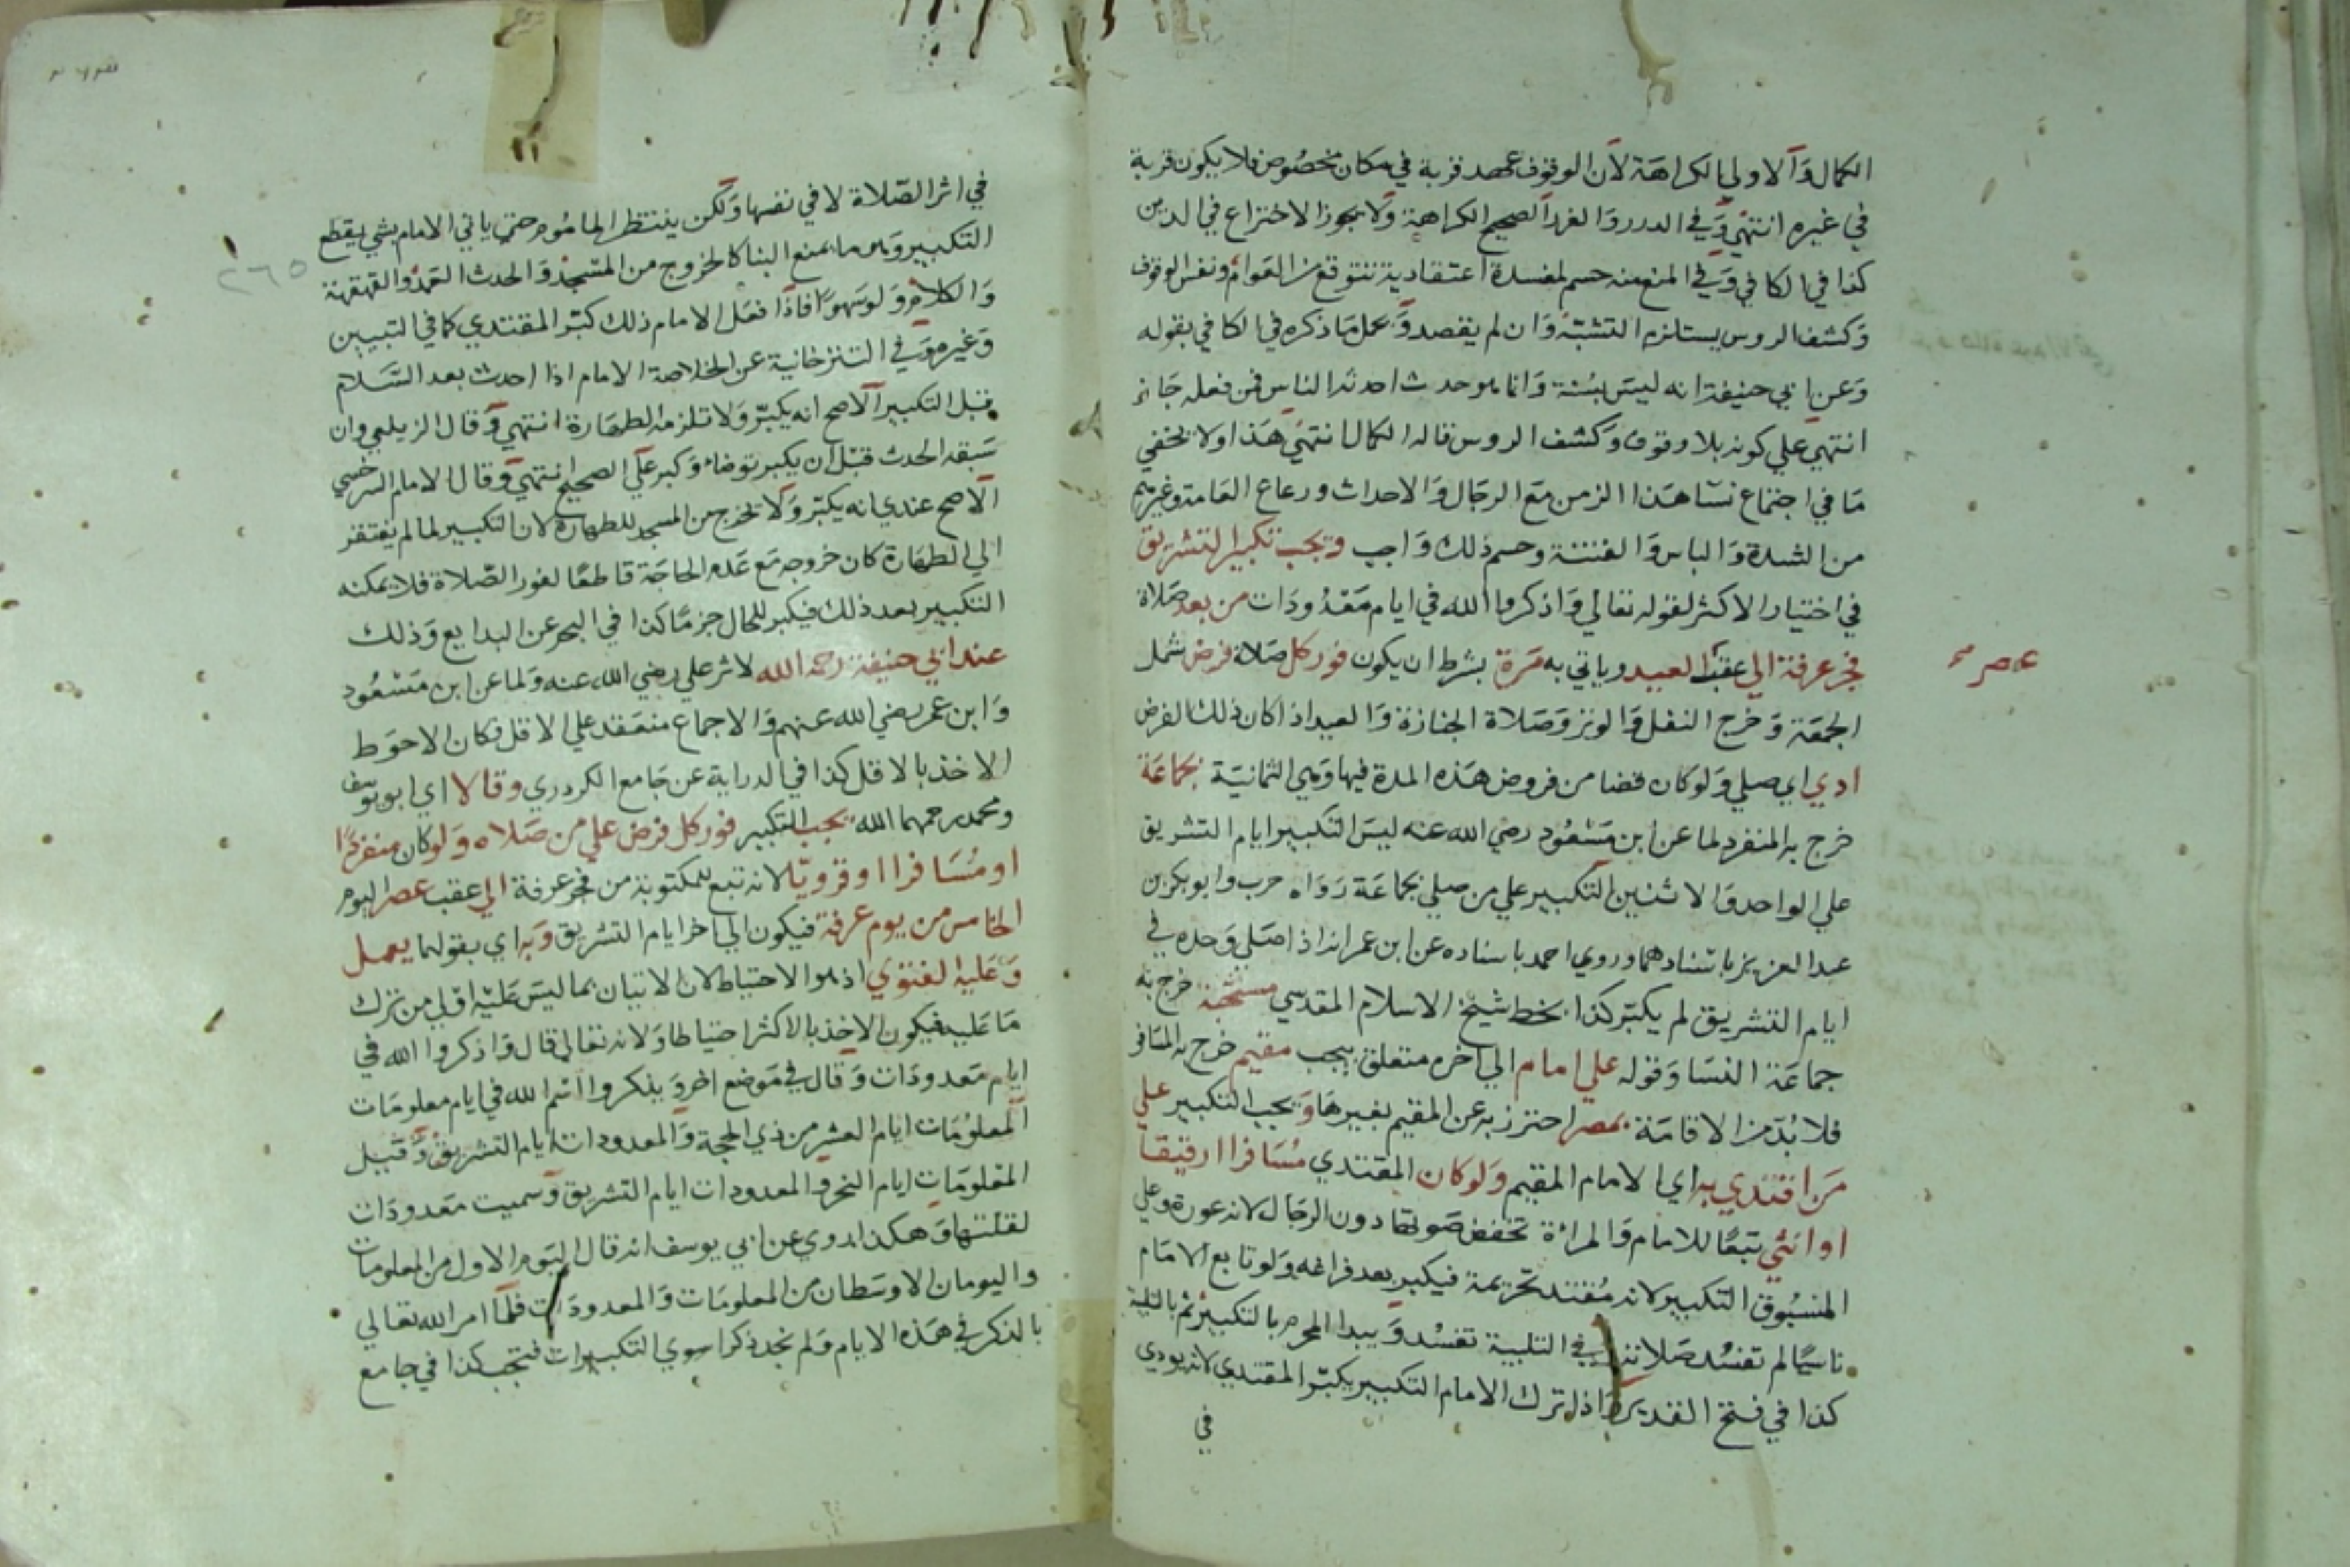 الكمال وَالاولي الكراهة لاَن الوقوف عهد قربة في مكان مخصُوص فلا يكون قربة
في غيره انتهي وَفي الدرر وَالغرر الصحيح الكراهة وَلا يجوز الاختراع في الدين
كذا في الكافي وَفي المنع منه حسم لمفسدة اعتقادية تتوقع من العَوام وَنفس الوقوف
وَكشف الروس يستلزم التشبّه وَان لم يقصد وَيحمل مَا ذكره في الكافي بقوله
وَعن ابي حنيفة انه ليسَ بسُنة وَانما هو حدث احدثه الناس فمن فعله جَائز
انتهي علي كونه بلا وقوف وَكشف الروس قاله الكمال انتهي هَذا وَلا يخفي
مَا في اجتماع نسَا هَذا الزمن مَع الرجَال وَالاحداث ورعاع العَامة وغيرهم
من الشدة وَالباس وَالفتنة وحسم ذلك وَاجب ويجب تكبير التشريق
في اختيار الاكثر لقوله تعالي وَاذكروا الله في ايام مَعْدُودَات من بعد صَلاة
فجر عرفة الي عقب العيد وياتي به مَرة بشرط ان يكون فور كل صَلاة فرض شمل
عصر صح
الجمعَة وَخرج النفل وَالوتر وَصَلاة الجنازة وَالعيد اذا كان ذلك الفرض
ادي اي صلي وَلو كان قضا من فروض هَذه المدة فيها وَهي الثمانيَة بجمَاعَة
خرج به المنفرد لما عن ابن مَسْعُود رضي الله عنه ليسَ التكبير ايام التشريق
علي الواحد وَالاثنين التكبير علي من صلي بجماعَة رَوَاه حرب وابو بكر بن
عبد العزيز باسنادهما وروي احمد باسناده عن ابن عمر انه اذا صَلي وَحده في
ايام التشريق لم يكبّر كذا بخط شيخ الاسلام المقدسي مستحبة خرج به
جماعَة النسَا وَقوله علي امام الي اخره متعلق بيجب مقيم خرج به المسَافر
فلا بُدّ من الاقامَة بمصر احترز به عن المقيم بغيرهَا وَيجب التكبير علي
مَن اقتدي به اي الامام المقيم وَلو كان المقتدي مُسَافرا او رقيقا
او انثي تبعًا للامام وَالمراة تخفض صَوتها دون الرجَال لانه عورة وَعلي
المسبُوق التكبير لانه مُقتد تحريمة فيكبر بعد فراغه وَلو تابع الامَام
ناسيًا لم تفسُد صَلاته وفي التلبية تفسُد وَيبدا المحرم بالتكبير ثم بالتلبية
كذا في فتح القدير وَاذا ترك الامام التكبير يكبّر المقتدي لانه يودي
في
٢٦٥
في اثر الصّلاة لا في نفسها وَلكن ينتظر المامُوم حتي ياتي الامام بشي يقطع
التكبير وَهو ما يمنع البنا كالخروج من المسْجد وَالحدث العَمد والقهقهة
وَالكلام وَلو سَهوًا فاذا فعَل الامام ذلك كبّر المقتدي كما في التبيين
وَغيره وَفي التترخانية عن الخلاصة الامام اذا احدث بعد السَّلام
قبل التكبير الاصح انه يكبّر وَلا تلزمه الطهَارة انتهي وَقال الزيلعي وان
سَبقه الحدث قبْل ان يكبر توضاء وَكبر علي الصحيح انتهي وَقال الامام السرخسي
الاصح عندي انه يكبّر وَلا يخرج من المسجد للطهارة لان التكبير لما لم يفتقر
الي الطهَارة كان خروجه مَع عَدم الحاجَة قاطعًا لفور الصّلاة فلا يمكنه
التكبير بعد ذلك فيكبر للحال جزمًا كذا في البحر عن البدايع وَذلك
عند ابي حنيفة رحمه الله لاثر علي رضي الله عنه وَلما عن ابن مَسْعُود
وَابن عمر رضي الله عنهم وَالاجماع منعَقد علي الاقل فكان الاحوَط
الاخذ بالاقل كذا في الدراية عن جَامع الكردري وقالا اي ابو يوسف
ومحمد رحمهما الله يجب التكبير فور كل فرض علي من صَلاه وَلو كان منفردًا
او مُسَافرا او قرويّا لانه تبع للمكتوبة من فجر عرفة الي عقب عصر اليوم
الخامس من يوم عرفة فيكون الي اخر ايام التشريق وَبه اي بقولهما يعمل
وَعَليه الفتوي اذ هو الاحتياط لان الاتيان بما ليسَ عَليْه اوْلي من ترك
مَا عَليه فيكون الاخذ بالاكثر احتياطا وَلانه تعالي قال وَاذكروا الله في
ايام مَعدودَات وَقال في مَوضع اخر وَيذكروا اسْم الله في ايام معلومَات
المعلومَات ايام العشر من ذي الحجة وَالمعدودات ايام التشريق وَقيل
المعْلومَات ايام النحر وَالمعدودات ايام التشريق وَسميت مَعدودَات
لقلتها وَهكذا روي عن ابي يوسف انه قال اليَوم الاول من المعلومَات
واليومان الاوسَطان من المعلومَات وَالمعدودَات فلمّا امر الله تعالي
بالذكر في هَذه الايام وَلم نجد ذكرا سوي التكبيرات فتجب كذا في جامع